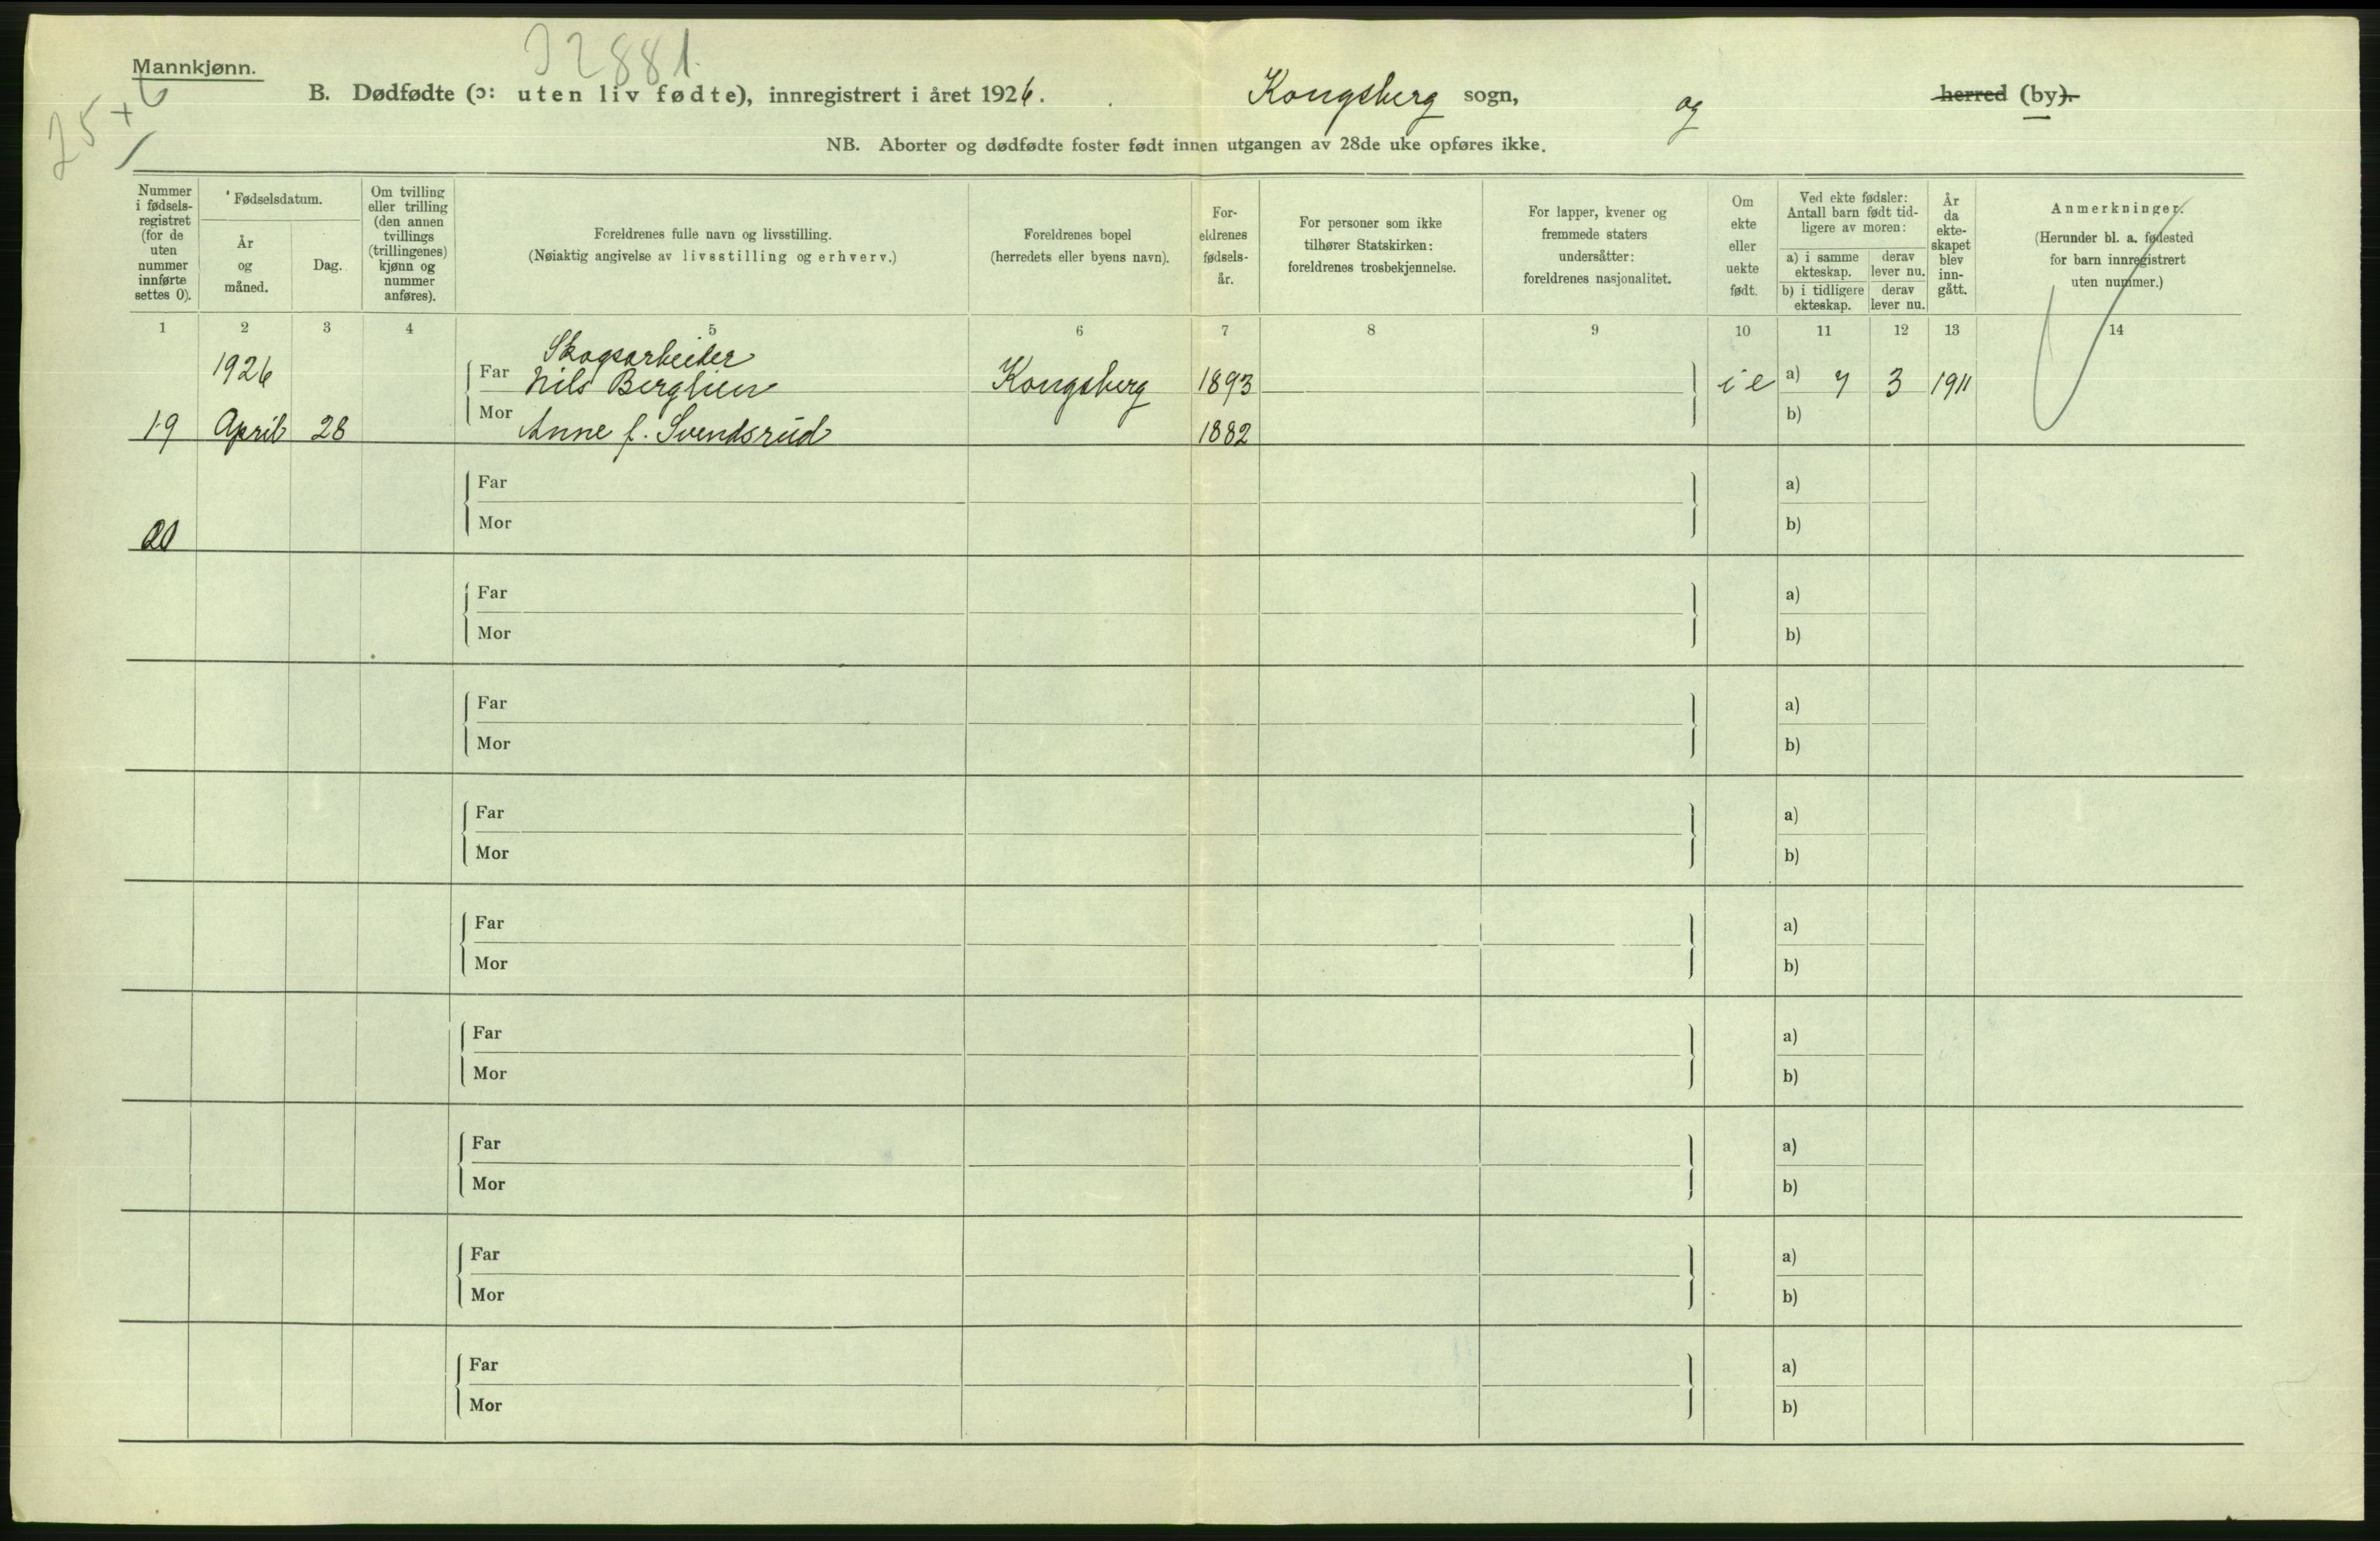 32881.
Mannkjønn.
25 + 6
B. Dødfødte (ɔ: uten liv fødte), innregistrert i året 1926. Kongsberg sogn, og herred (by).
NB. Aborter og dødfødte foster født innen utgangen av 28de uke opføres ikke.
Nummer i fødsels-registret (for de uten nummer innførte settes 0).
Fødselsdatum.
År og måned.
Dag.
Om tvilling eller trilling (den annen tvillings (trillingenes) kjønn og nummer anføres).
Foreldrenes fulle navn og livsstilling.
(Nøiaktig angivelse av livsstilling og erhverv.)
Foreldrenes bopel
(herredets eller byens navn).
For-eldrenes fødsels-år.
For personer som ikke tilhører Statskirken: foreldrenes trosbekjennelse.
For lapper, kvener og fremmede staters undersåtter: foreldrenes nasjonalitet.
Om ekte eller uekte født.
Ved ekte fødsler: Antall barn født tid-ligere av moren:
a) i samme ekteskap.
derav lever nu.
b) i tidligere ekteskap.
derav lever nu.
År da ekte-skapet blev inn-gått.
Anmerkninger.
(Herunder bl. a. fødested for barn innregistrert uten nummer.)
1 2 3 4 5 6 7 8 9 10 11 12 13 14
Skogsarbeider
1926 Far Nils Berglien Kongsberg 1893 i e a) 7 3 1911
Mor b)
19 April 28 Anne f. Svendsrud 1882
Far a)
Mor b)
20
Far a)
Mor b)
Far a)
Mor b)
Far a)
Mor b)
Far a)
Mor b)
Far a)
Mor b)
Far a)
Mor b)
Far a)
Mor b)
Far a)
Mor b)